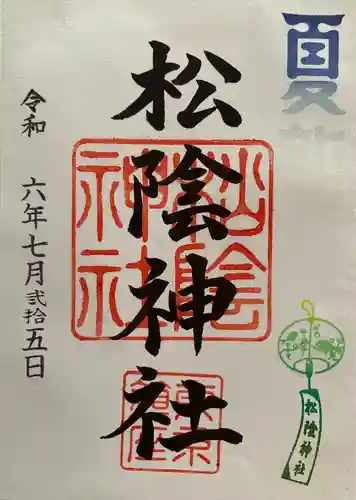 夏詣
松陰神社
令和 六年七月弐拾五日
松陰神社
松陰神社